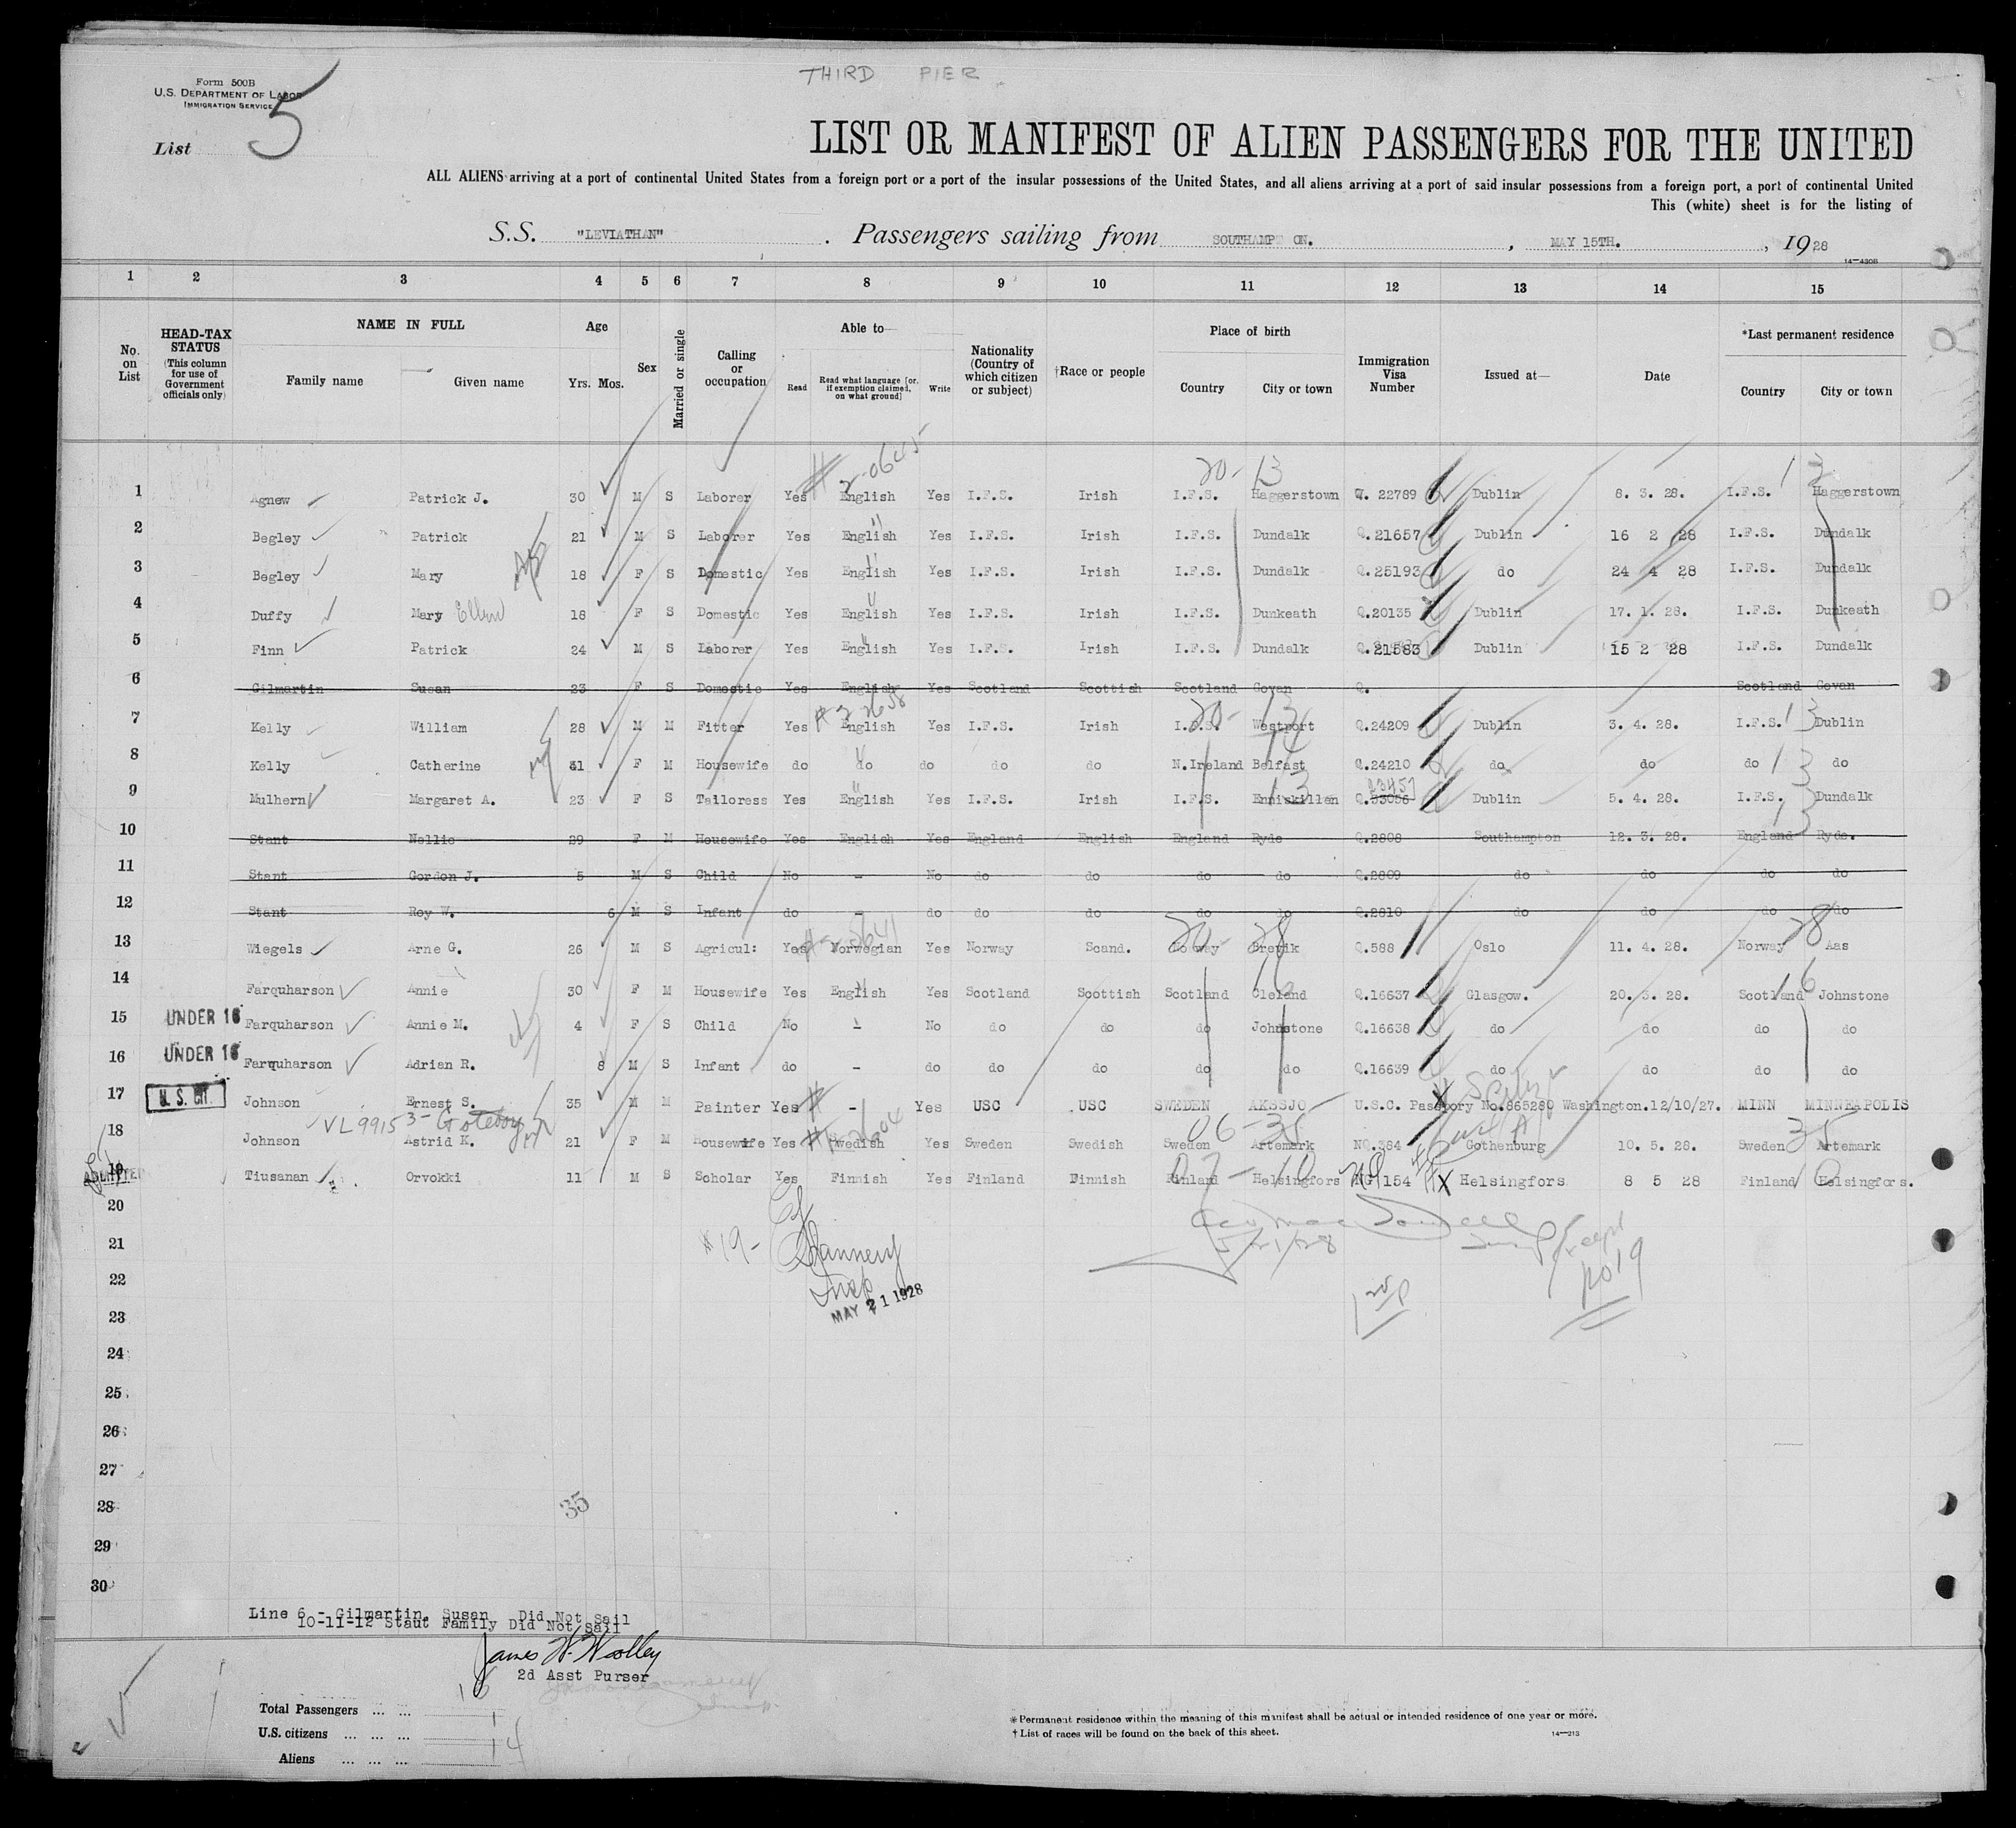 THIRD PIER
Form 500B
U.S. DEPARTMENT OF LABOR
IMMIGRATION SERVICE
List 5
LIST OR MANIFEST OF ALIEN PASSENGERS FOR THE UNITED
ALL ALIENS arriving at a port of continental United States from a foreign port or a port of the insular possessions of the United States, and all aliens arriving at a port of said insular possessions from a foreign port, a port of continental United
This (white) sheet is for the listing of
S.S. "LEVIATHAN". Passengers sailing from SOUTHAMPTON., MAY 15TH., 1928
14—430B
1 2 3 4 5 6 7 8 9 10 11 12 13 14 15
No. on List
HEAD-TAX STATUS (This column for use of Government officials only)
NAME IN FULL
Family name Given name
Age
Yrs. Mos.
Sex
Married or single
Calling or occupation
Able to—
Read
Read what language [or, if exemption claimed, on what ground]
Write
Nationality (Country of which citizen or subject)
†Race or people
Place of birth
Country City or town
Immigration Visa Number
Issued at—
Date
*Last permanent residence
Country City or town
# 2-0645 20-13 13
1 Agnew Patrick J. 30 M S Laborer Yes English Yes I.F.S. Irish I.F.S. Haggerstown Q. 22789 Dublin 8. 3. 28. I.F.S. Haggerstown
2 Begley Patrick 21 M S Laborer Yes English Yes I.F.S. Irish I.F.S. Dundalk Q.21657 Dublin 16 2 28 I.F.S. Dundalk
3 Begley Mary 18 F S Domestic Yes English Yes I.F.S. Irish I.F.S. Dundalk Q.25193 do 24 4 28 I.F.S. Dundalk
4 Duffy Mary Ellen 18 F S Domestic Yes English Yes I.F.S. Irish I.F.S. Dunkeath Q.20135 Dublin 17. 1. 28. I.F.S. Dunkeath
5 Finn Patrick 24 M S Laborer Yes English Yes I.F.S. Irish I.F.S. Dundalk Q.21583 Dublin 15 2 28 I.F.S. Dundalk
6 Gilmartin Susan 23 F S Domestic Yes English Yes Scotland Scottish Scotland Govan Q. Scotland Govan
7 Kelly William 28 M M Fitter Yes English Yes I.F.S. Irish I.F.S. Westport Q.24209 Dublin 3. 4. 28. I.F.S. Dublin
8 Kelly Catherine 31 F M Housewife do do do do do N.Ireland Belfast Q.24210 do do do do
9 Mulhern Margaret A. 23 F S Tailoress Yes English Yes I.F.S. Irish I.F.S. Enniskillen Q.53056 Dublin 5. 4. 28. I.F.S. Dundalk
10 Stant Nellie 29 F M Housewife Yes English Yes England English England Ryde Q.2808 Southampton 12. 3. 28. England Ryde.
11 Stant Gordon J. 5 M S Child No - No do do do do Q.2809 do do do do
12 Stant Roy W. 6 M S Infant do - do do do do do Q.2810 do do do do
13 Wiegels Arne G. 26 M S Agricul: Yes Norwegian Yes Norway Scand. Norway Brevik Q.588 Oslo 11. 4. 28. Norway Aas
14 Farquharson Annie 30 F M Housewife Yes English Yes Scotland Scottish Scotland Cleland Q.16637 Glasgow. 20. 3. 28. Scotland Johnstone
15 UNDER 16 Farquharson Annie M. 4 F S Child No - No do do do Johnstone Q.16638 do do do do
16 UNDER 16 Farquharson Adrian R. 8 M S Infant do - do do do do do Q.16639 do do do do
17 U. S. CIT. Johnson Ernest S. 35 M M Painter Yes - Yes USC USC SWEDEN AKSSJO U.S.C. Passpory No.865280 Washington.12/10/27. MINN MINNEAPOLIS
VL 99153-Goteborg
18 Johnson Astrid K. 21 F M Housewife Yes Swedish Yes Sweden Swedish Sweden Artemark NQ.384 Gothenburg 10. 5. 28. Sweden Artemark
19 ADMITTED Tiusanan Orvokki 11 M S Scholar Yes Finnish Yes Finland Finnish Finland Helsingfors NQ 154 Helsingfors 8 5 28 Finland Helsingfors.
20
21 #19- Flannery
5/21/28
22 Insp
MAY 21 1928
23
24
25
26
27
28 35
29
30
Line 6 - Gilmartin, Susan Did Not Sail
10-11-12 Staut Family Did Not Sail
James W. Woolley
2d Asst Purser
Total Passengers ... ...
U.S. citizens ... ... ... 1
Aliens ... ... ... 14
* Permanent residence within the meaning of this manifest shall be actual or intended residence of one year or more.
† List of races will be found on the back of this sheet.
14—213